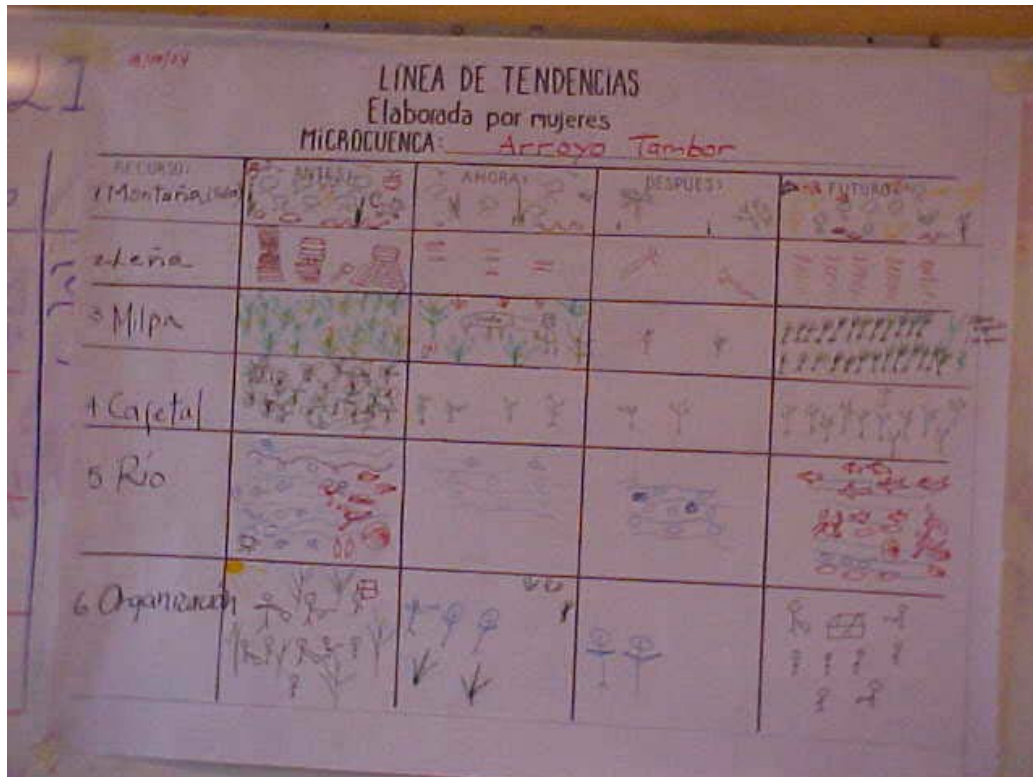 LÍNEA DE TENDENCIAS
Elaborada por mujeres
MiCROCUENCA: Arroyo Tambor
RECURSO: ANTES: AHORA: DESPUES: FUTURO
1 Montaña
2 Leña
3 Milpa
4 Cafetal
5 Río
6 Organización